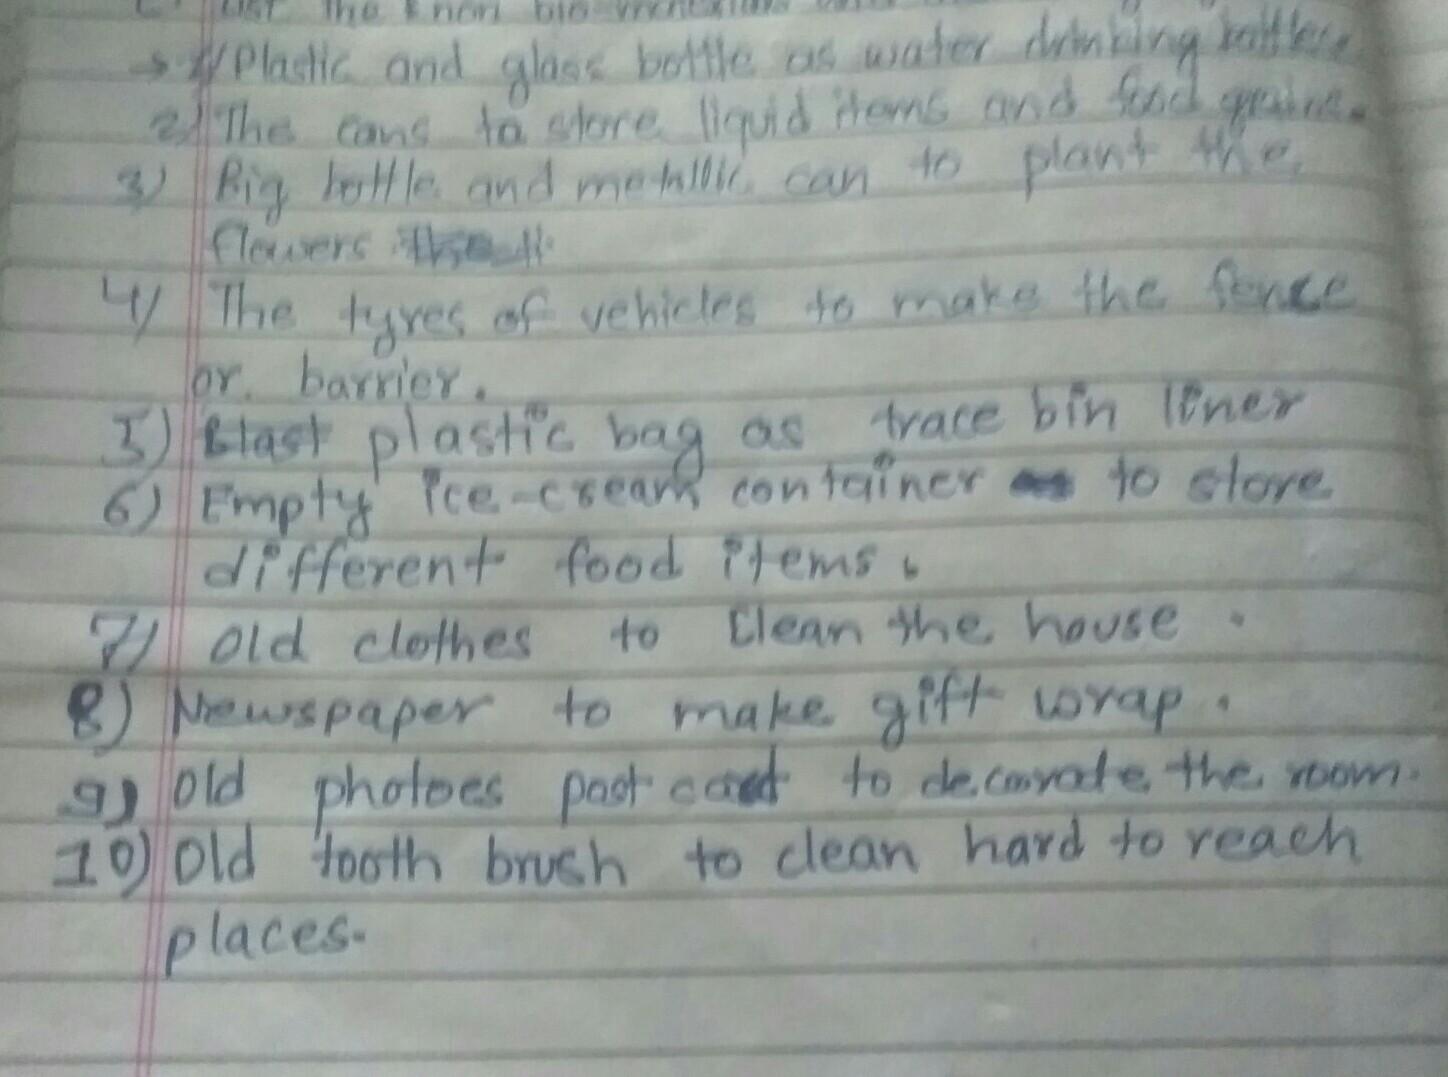 List the
→ 1) Plastic and glass bottle as water drinking bottle.
2) The cans to store liquid items and food grains.
3) Big bottle and metallic can to plant the
flowers
4) The tyres of vehicles to make the fence
or barrier.
5) plastic bag as trace bin liner
6) Empty ice-cream container to store
different food items.
7) Old clothes to clean the house.
8) Newspaper to make gift wrap.
9) Old photoes post card to decorate the room.
10) Old tooth brush to clean hard to reach
places.